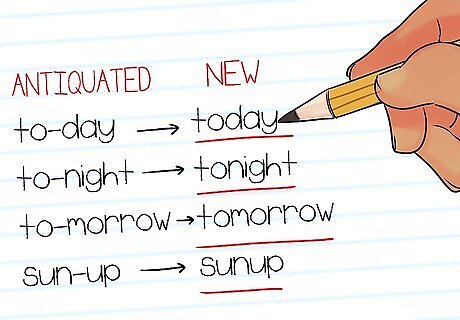 ANTIQUATED NEW
to-day → today
to-night → tonight
to-morrow → tomorrow
sun-up → sunup